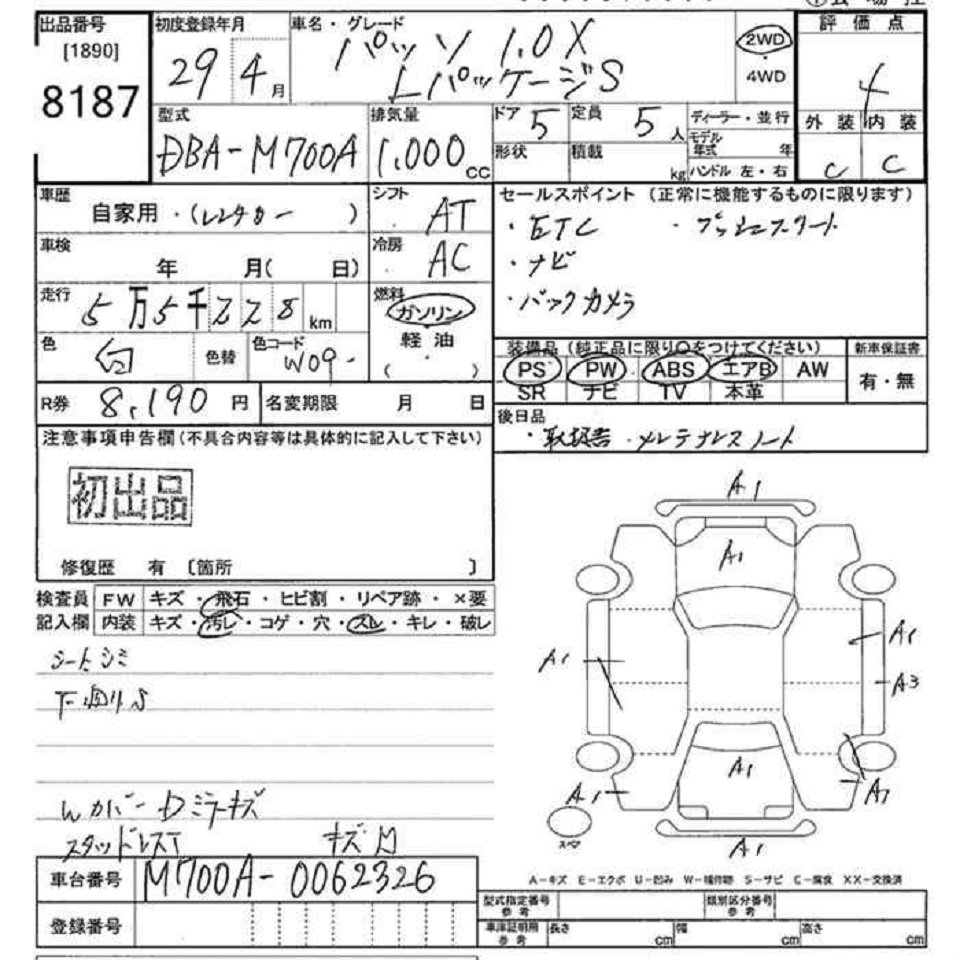 出品番号
[1890]
8187
初度登録年月
29 4月
車名・グレード
パッソ 1.0X
LパッケージS
2WD
4WD
評価点
4
外装 内装
C C
型式
DBA-M700A
排気量
1,000cc
ドア 5
定員 5人
形状
積載 kg
ディーラー・並行
モデル年式 年
ハンドル 左・右
車歴
自家用・(レンタカー )
シフト
AT
車検
年 月( 日)
冷房
AC
走行
5万5千228km
燃料
ガソリン
軽油
( )
色
白
色替
色コード
W09
R券 8,190円
名変期限 月 日
セールスポイント (正常に機能するものに限ります)
・ETC ・プッシュスタート
・ナビ
・バックカメラ
装備品 (純正品に限り○をつけてください)
新車保証書
PS PW ABS エアB AW
SR ナビ TV 本革
有・無
後日品
・取扱書・メンテナンスノート
注意事項申告欄(不具合内容等は具体的に記入して下さい)
初出品
修復歴 有〔箇所 〕
検査員
記入欄
FW キズ・飛石・ヒビ割・リペア跡・×要
内装 キズ・汚レ・コゲ・穴・スレ・キレ・破レ
シートシミ
下回りS
Wカバー Dミラーキズ
スタッドレスT キズ
A1
A1
A1
A1
A3
A1
A1
A1
A1
スペア
A-キズ E-エクボ U-凹み W-補修跡 S-サビ C-腐食 XX-交換済
車台番号
M700A-0062326
登録番号
型式指定番号
参考
類別区分番号
参考
車庫証明用
参考
長さ cm
幅 cm
高さ cm